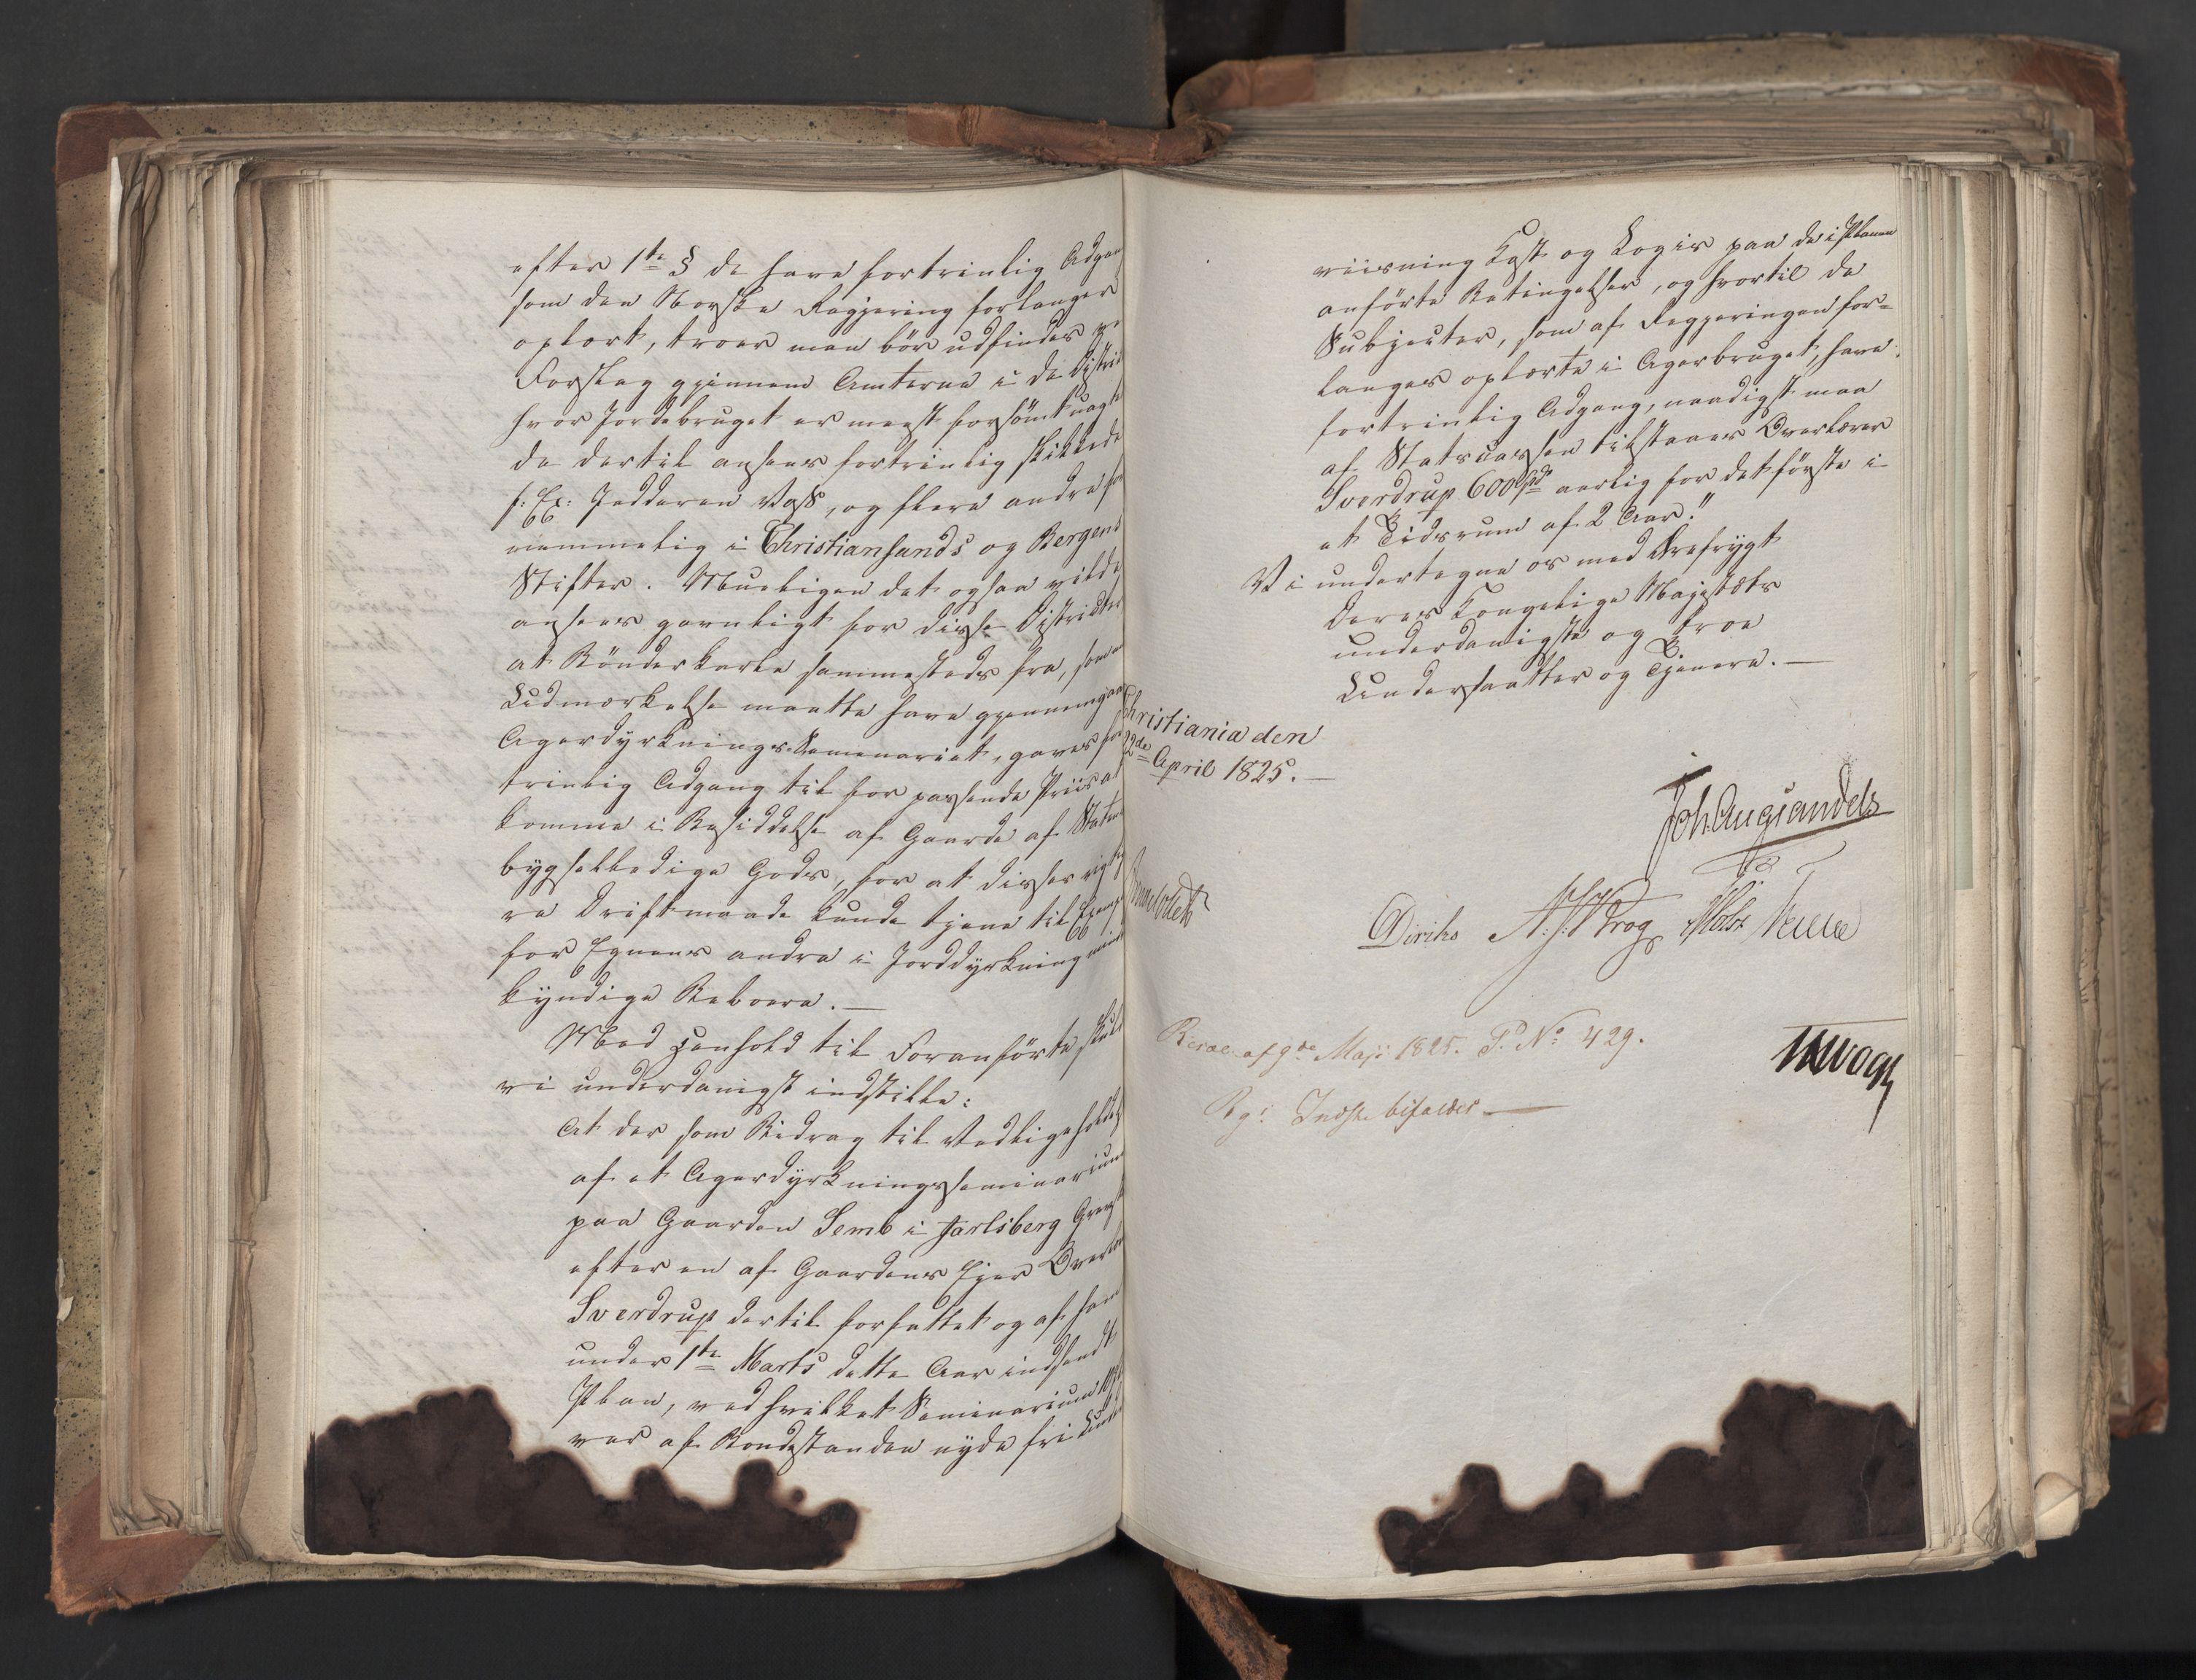 efter 1te § de have fortrinlig Adgan
som den Norske Regjering forlanger
oplært, troer man bör udfindes ve
Forslag gjennem Amterne i de Distric
hvor Jordebruget er meest forsömt uagt
de dertil ansees fortrinlig skikkede
f: Ex: Jedderen Voss, og flere andre for
nemmelig i Christiansands og Bergens
Stifter. Mueligen det ogsaa vilde
ansees gavnligt for disse Districter
at Bönderkarle sammesteds fra, som
Udmærkelse maatte have gjennemgaa
Agerdyrknings Semenariet, gaves for
trinlig Adgang til for passende Priis at
komme i Besiddelse af Gaarde af Statens
bygselledige Gods, for at disses rigtig
re Driftmaade kunde tjene til Exempe
for Egnens andre i Jorddyrkning mind
kyndige Beboere. —
Med Henhold til Foranförte skulle
vi underdanigst indstille:
At der som Bidrag til Vedligeholdels
af et Agerdyrkningsseminarium
paa Gaarden Semb i Jarlsberg Grevsk
efter en af Gaardens Ejer Overlæ
Sverdrup dertil forfattet og af ham
under 1te Marts dette Aar indsendt
Plan, ved hvilket Seminarium
ver af Bondestanden nyde fri Under
viisning Kost og Logis paa de i Planen
anförte Betingelser, og hvortil de
Subjecter, som af Regjeringen for-
langes oplærte i Agerbruget, have
fortrinlig Adgang, naadigst maa
af Statscassen tilstaaes Overlærer
Sverdrup 600 Spd aarlig for det förste i
et Tidsrum af 2 Aar."
Vi undertegne os med Ærefrygt
Deres Kongelige Majestæts
underdanigste og troe
Undersaatter og Tjenere. —
Christiania den
22de April 1825. —
Joh. Aug Sandels
Collett
Diriks A. J. Krog Holst
Resol. af 9de Maji 1825. P. No 429.
Rgs Indst. bifaldes —